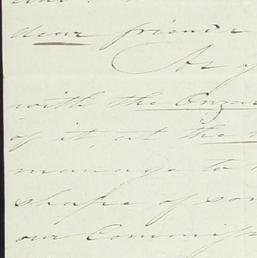 dear friends
As y
with the Onza
of it, at the
manage to
shape of som
our Commiss